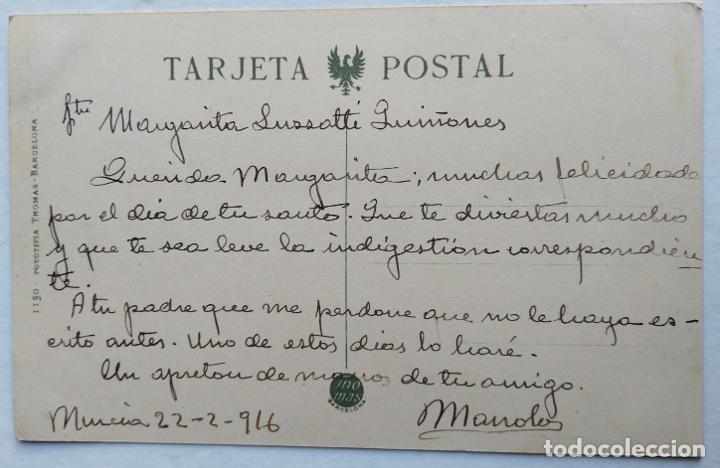 TARJETA POSTAL
Srta Margarita Lussatti Quiñones
Querida Margarita; muchas felicidade
por el dia de tu santo. Que te diviertas mucho
y que te sea leve la indigestión correspondien
te.
A tu padre que me perdone que no le haya es-
crito antes. Uno de estos dias lo haré.
Un apreton de manos de tu amigo.
Murcia 22-2-916 Manolo
1130 - FOTOTIPIA THOMAS - BARCELONA
THO
MAS
BARCELONA
todocoleccion